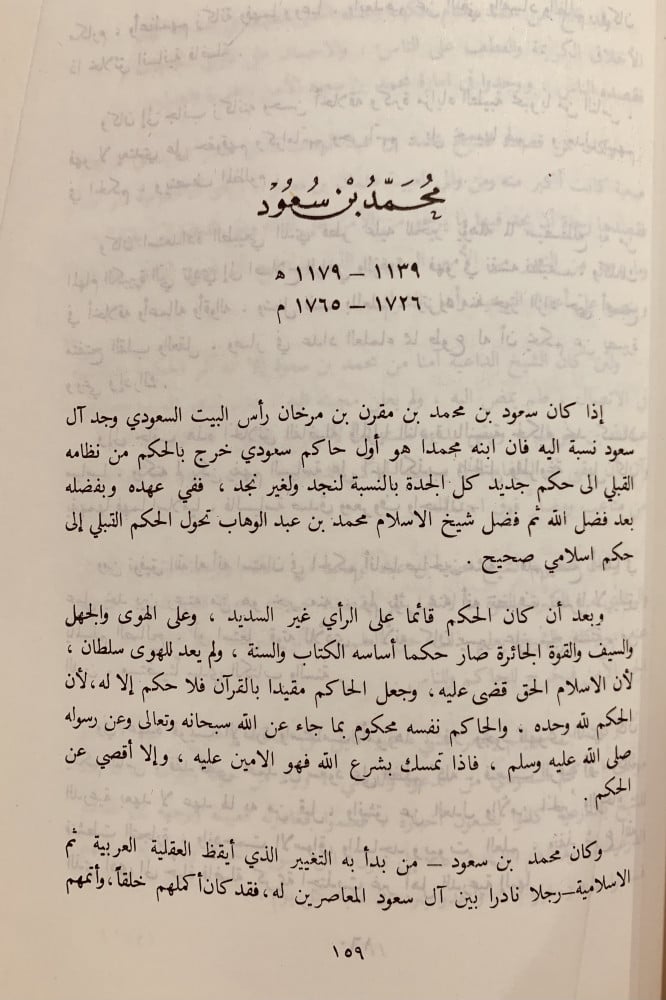 مُحَمَّدُ بْنُ سُعُوْد
١١٣٩ – ١١٧٩ ه
١٧٢٦ – ١٧٦٥ م
إذا كان سعود بن محمد بن مقرن بن مرخان رأس البيت السعودي وجد آل
سعود نسبة اليه فان ابنه محمدا هو أول حاكم سعودي خرج بالحكم من نظامه
القبلي الى حكم جديد كل الجدة بالنسبة لنجد ولغير نجد ، ففي عهده وبفضله
بعد فضل الله ثم فضل شيخ الاسلام محمد بن عبد الوهاب تحول الحكم القبلي إلى
حكم اسلامي صحيح .
وبعد أن كان الحكم قائما على الرأي غير السديد ، وعلى الهوى والجهل
والسيف والقوة الجائرة صار حكما أساسه الكتاب والسنة ، ولم يعد للهوى سلطان ،
لأن الاسلام الحق قضى عليه ، وجعل الحاكم مقيدا بالقرآن فلا حكم إلا له ، لأن
الحكم لله وحده ، والحاكم نفسه محكوم بما جاء عن الله سبحانه وتعالى وعن رسوله
صلى الله عليه وسلم ، فاذا تمسك بشرع الله فهو الامين عليه ، وإلا أقصي عن
الحكم .
وكان محمد بن سعود – من بدأ به التغيير الذي أيقظ العقلية العربية ثم
الاسلامية – رجلا نادرا بين آل سعود المعاصرين له ، فقد كان أكملهم خلقاً ، وأتمهم
١٥٩